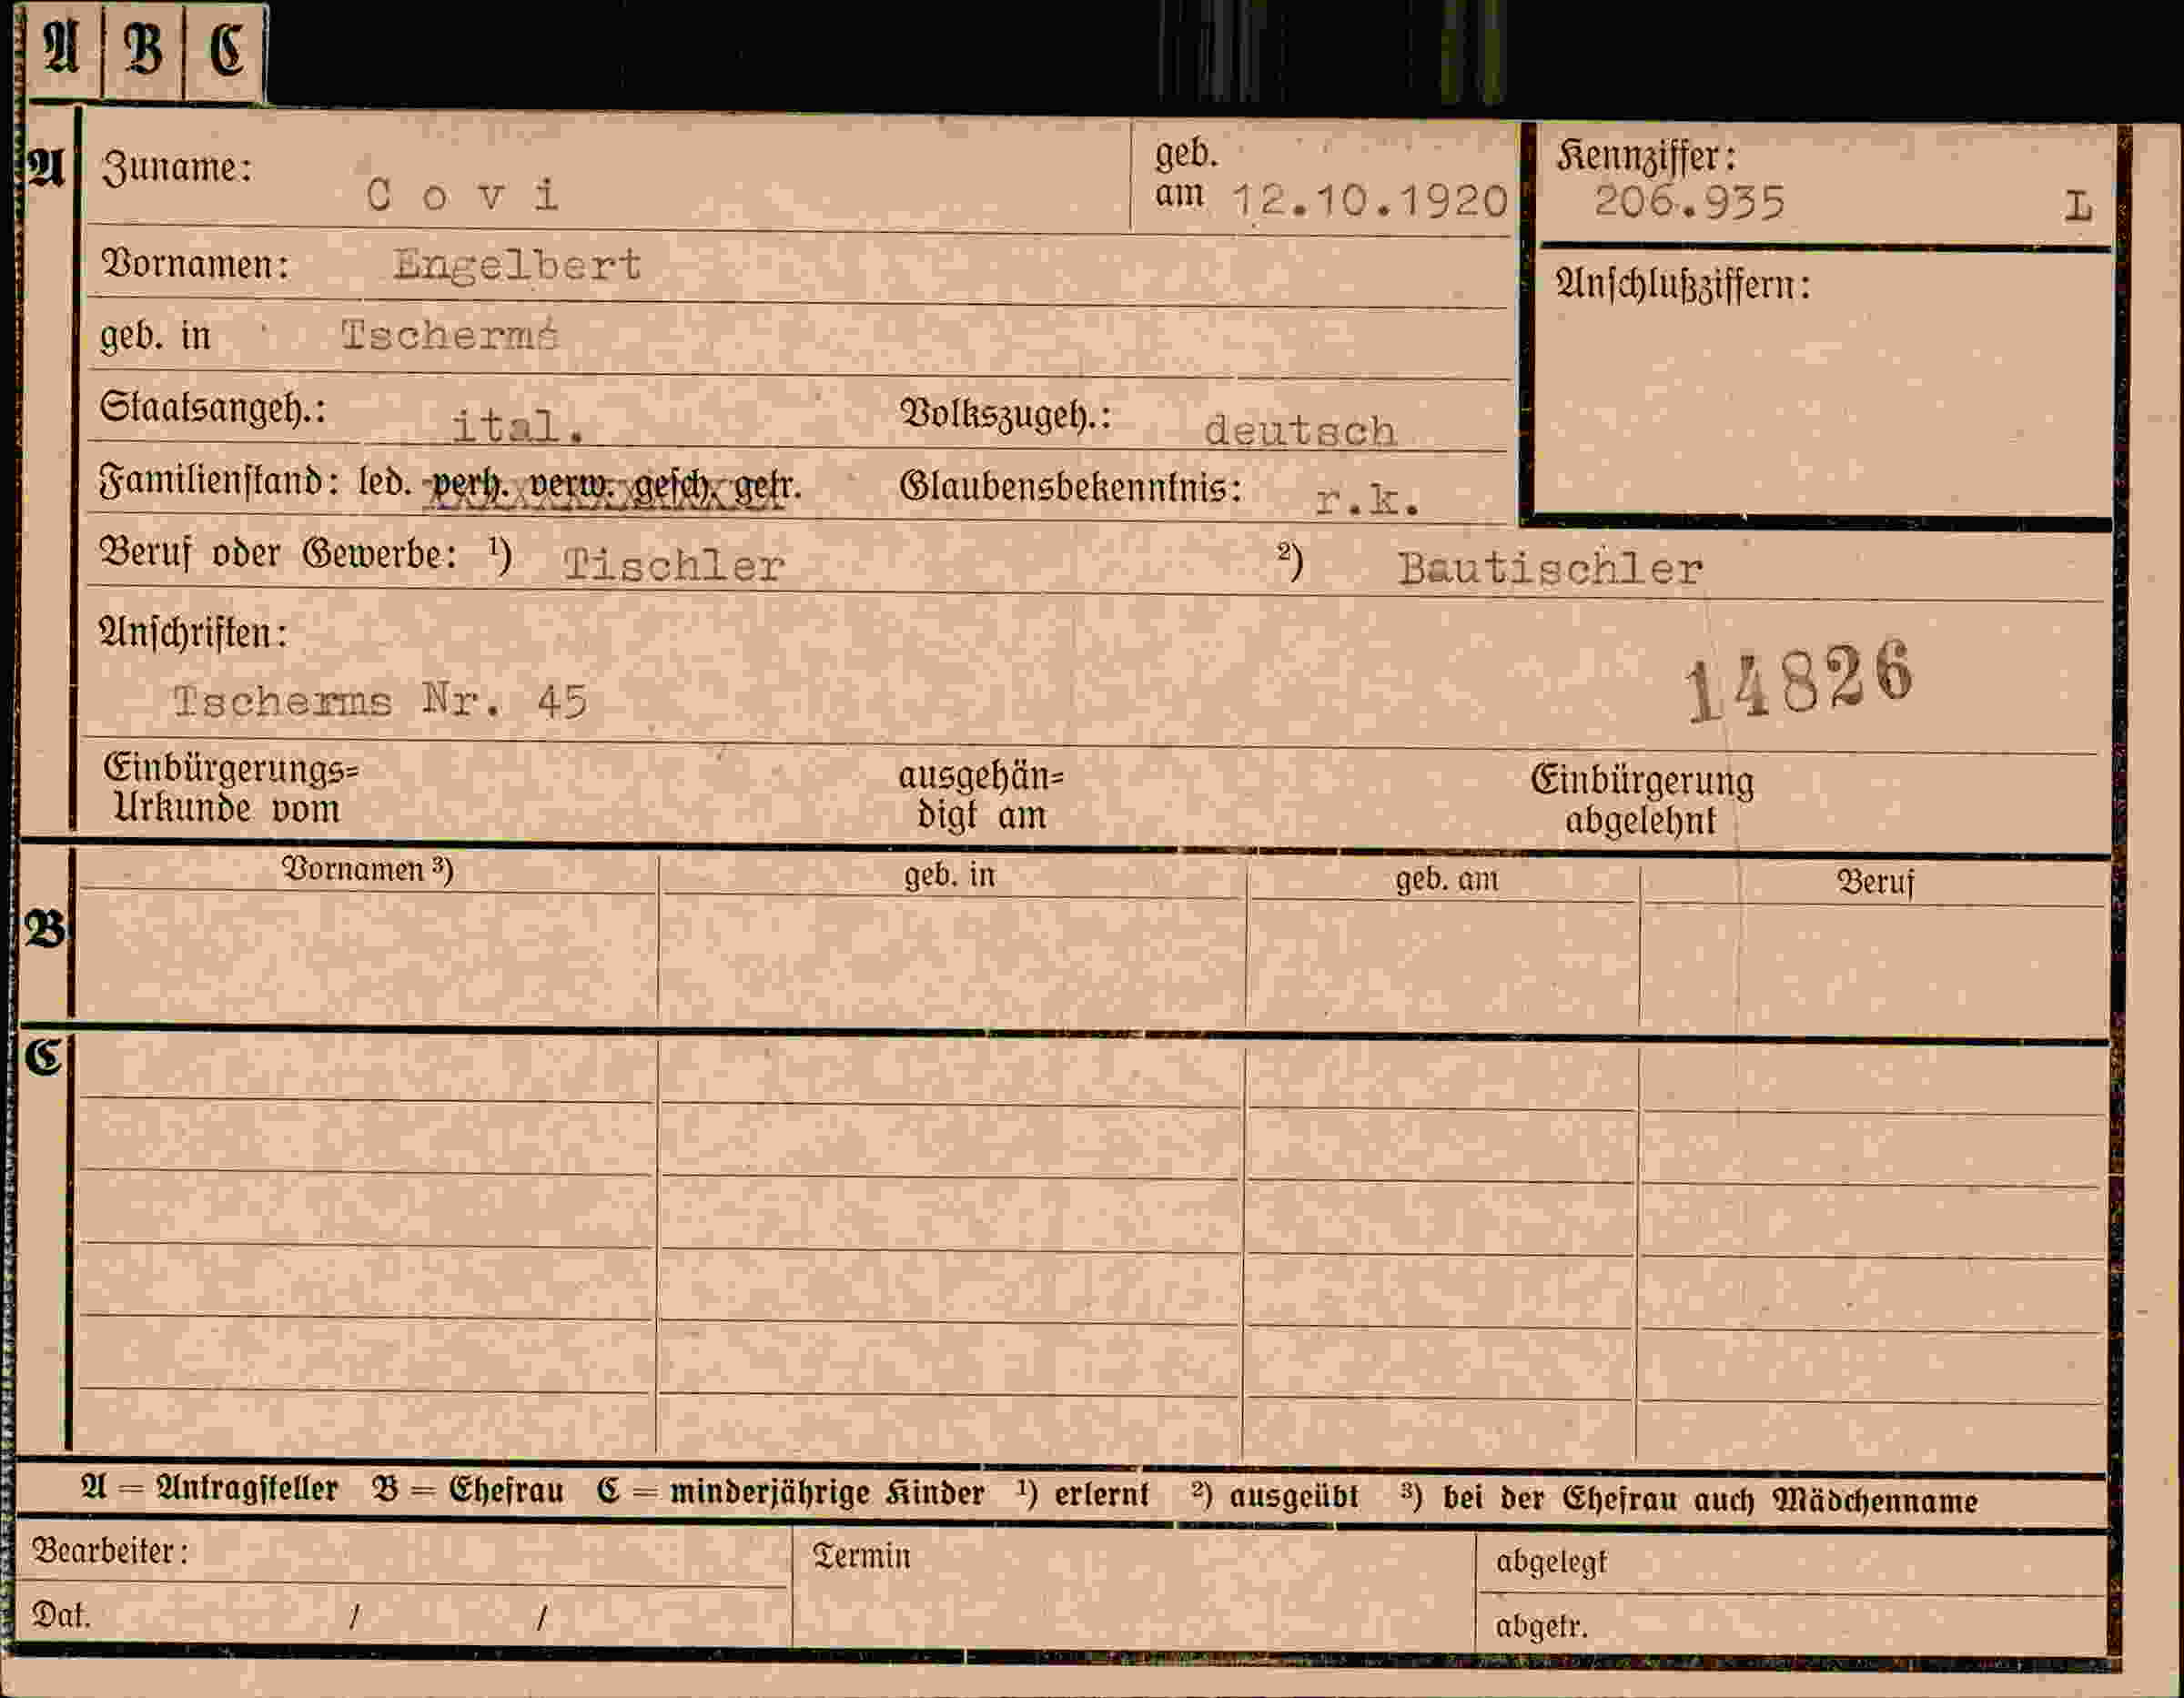 A B C
A Zuname: Covi geb. am 12.10.1920 Kennziffer: 206.935 L
Vornamen: Engelbert Anschlußziffern:
geb. in Tscherms
Staatsangeh.: ital. Volkszugeh.: deutsch
Familienstand: led. verh. verw. gesch. getr. Glaubensbekenntnis: r.k.
Beruf oder Gewerbe: ¹) Tischler ²) Bautischler
Anschriften:
Tscherms Nr. 45 14826
Einbürgerungs=
Urkunde vom
ausgehän=
digt am
Einbürgerung
abgelehnt
B Vornamen ³) geb. in geb. am Beruf
C
A = Antragsteller B = Ehefrau C = minderjährige Kinder ¹) erlernt ²) ausgeübt ³) bei der Ehefrau auch Mädchenname
Bearbeiter: Termin abgelegt
Dat. / / abgetr.